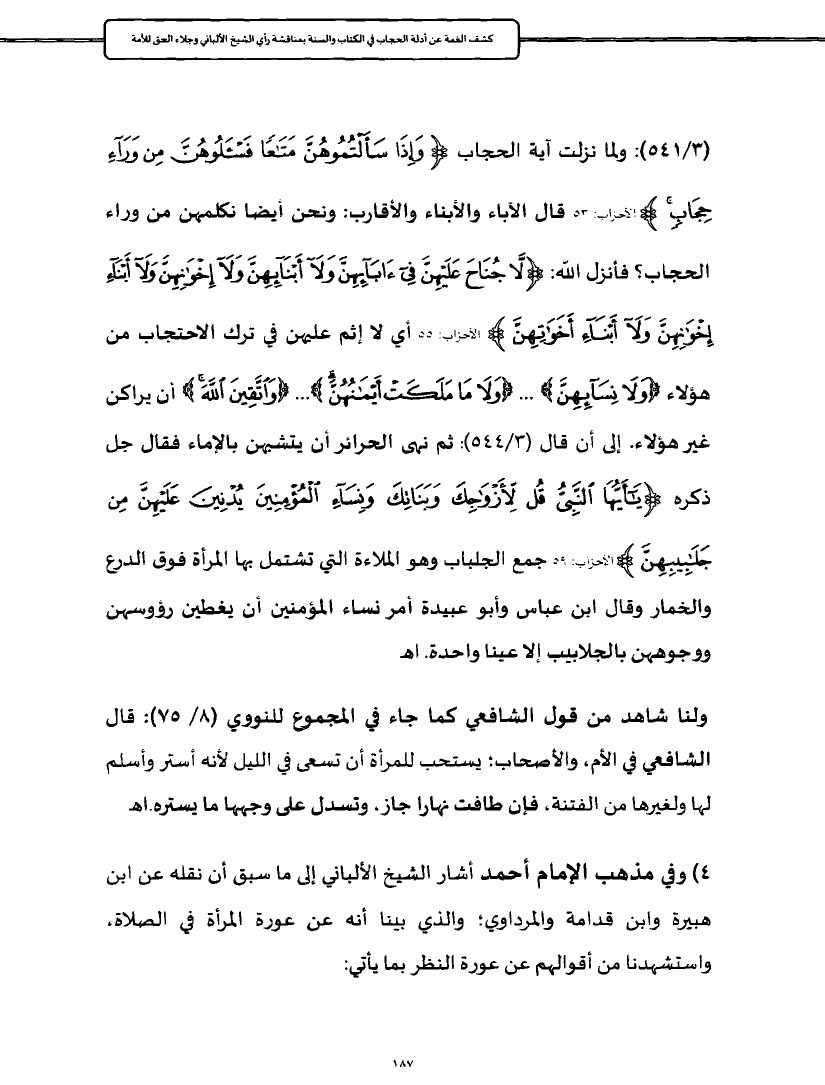 كشف الغمة عن أدلة الحجاب في الكتاب والسنة بمناقشة رأي الشيخ الألباني وجلاء الحق للأمة
(٥٤١/٣): ولما نزلت آية الحجاب ﴿وَإِذَا سَأَلْتُمُوهُنَّ مَتَٰعًا فَسْـَٔلُوهُنَّ مِن وَرَآءِ
حِجَابٍۚ﴾ الأحزاب: ٥٣ قال الآباء والأبناء والأقارب: ونحن أيضا نكلمهن من وراء
الحجاب؟ فأنزل الله: ﴿لَّا جُنَاحَ عَلَيْهِنَّ فِىٓ ءَابَآئِهِنَّ وَلَآ أَبْنَآئِهِنَّ وَلَآ إِخْوَٰنِهِنَّ وَلَآ أَبْنَآءِ
إِخْوَٰنِهِنَّ وَلَآ أَبْنَآءِ أَخَوَٰتِهِنَّ﴾ الأحزاب: ٥٥ أي لا إثم عليهن في ترك الاحتجاب من
هؤلاء ﴿وَلَا نِسَآئِهِنَّ﴾ ... ﴿وَلَا مَا مَلَكَتْ أَيْمَٰنُهُنَّۗ﴾... ﴿وَٱتَّقِينَ ٱللَّهَۚ﴾ أن يراكن
غير هؤلاء. إلى أن قال (٥٤٤/٣): ثم نهى الحرائر أن يتشبهن بالإماء فقال جل
ذكره ﴿يَٰٓأَيُّهَا ٱلنَّبِىُّ قُل لِّأَزْوَٰجِكَ وَبَنَاتِكَ وَنِسَآءِ ٱلْمُؤْمِنِينَ يُدْنِينَ عَلَيْهِنَّ مِن
جَلَٰبِيبِهِنَّ﴾ الأحزاب: ٥٩ جمع الجلباب وهو الملاءة التي تشتمل بها المرأة فوق الدرع
والخمار وقال ابن عباس وأبو عبيدة أمر نساء المؤمنين أن يغطين رؤوسهن
ووجوههن بالجلابيب إلا عينا واحدة. اهـ
ولنا شاهد من قول الشافعي كما جاء في المجموع للنووي (٨/ ٧٥): قال
الشافعي في الأم، والأصحاب؛ يستحب للمرأة أن تسعى في الليل لأنه أستر وأسلم
لها ولغيرها من الفتنة، فإن طافت نهارا جاز، وتسدل على وجهها ما يستره.اهـ
٤) وفي مذهب الإمام أحمد أشار الشيخ الألباني إلى ما سبق أن نقله عن ابن
هبيرة وابن قدامة والمرداوي؛ والذي بينا أنه عن عورة المرأة في الصلاة،
واستشهدنا من أقوالهم عن عورة النظر بما يأتي:
١٨٧